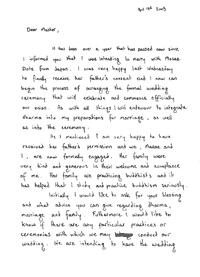 Apr 19th 2003
Dear Master,
It has been over a year that has passed now since
I informed you that I was intending to marry with Masae
Date from Japan. I was very happy last Wednesday
to finally receive her father's consent and I now can
begin the process of arranging the formal wedding
ceremony that will celebrate and commence officially
our oasis. As with all things I will endeavour to integrate
dharma into my preparations for marriage, as well
as into the ceremony.
As I mentioned I am very happy to have
received her father's permission and we, Masae and
I, are now formally engaged. Her family were
very kind and generous in their welcome and acceptance
of me. Her family are practicing buddhists and it
has helped that I study and practice buddhism seriously.
Initially I would like to ask for your blessing
and what advice you can give regarding dharma,
marriage and family. Futhermore I would like to
know if there are any particular practices or
ceremonies with which we may conduct our
wedding. We are intending to have the wedding